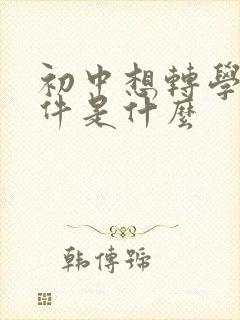 初中想轉學
件是什麼
韩傳號